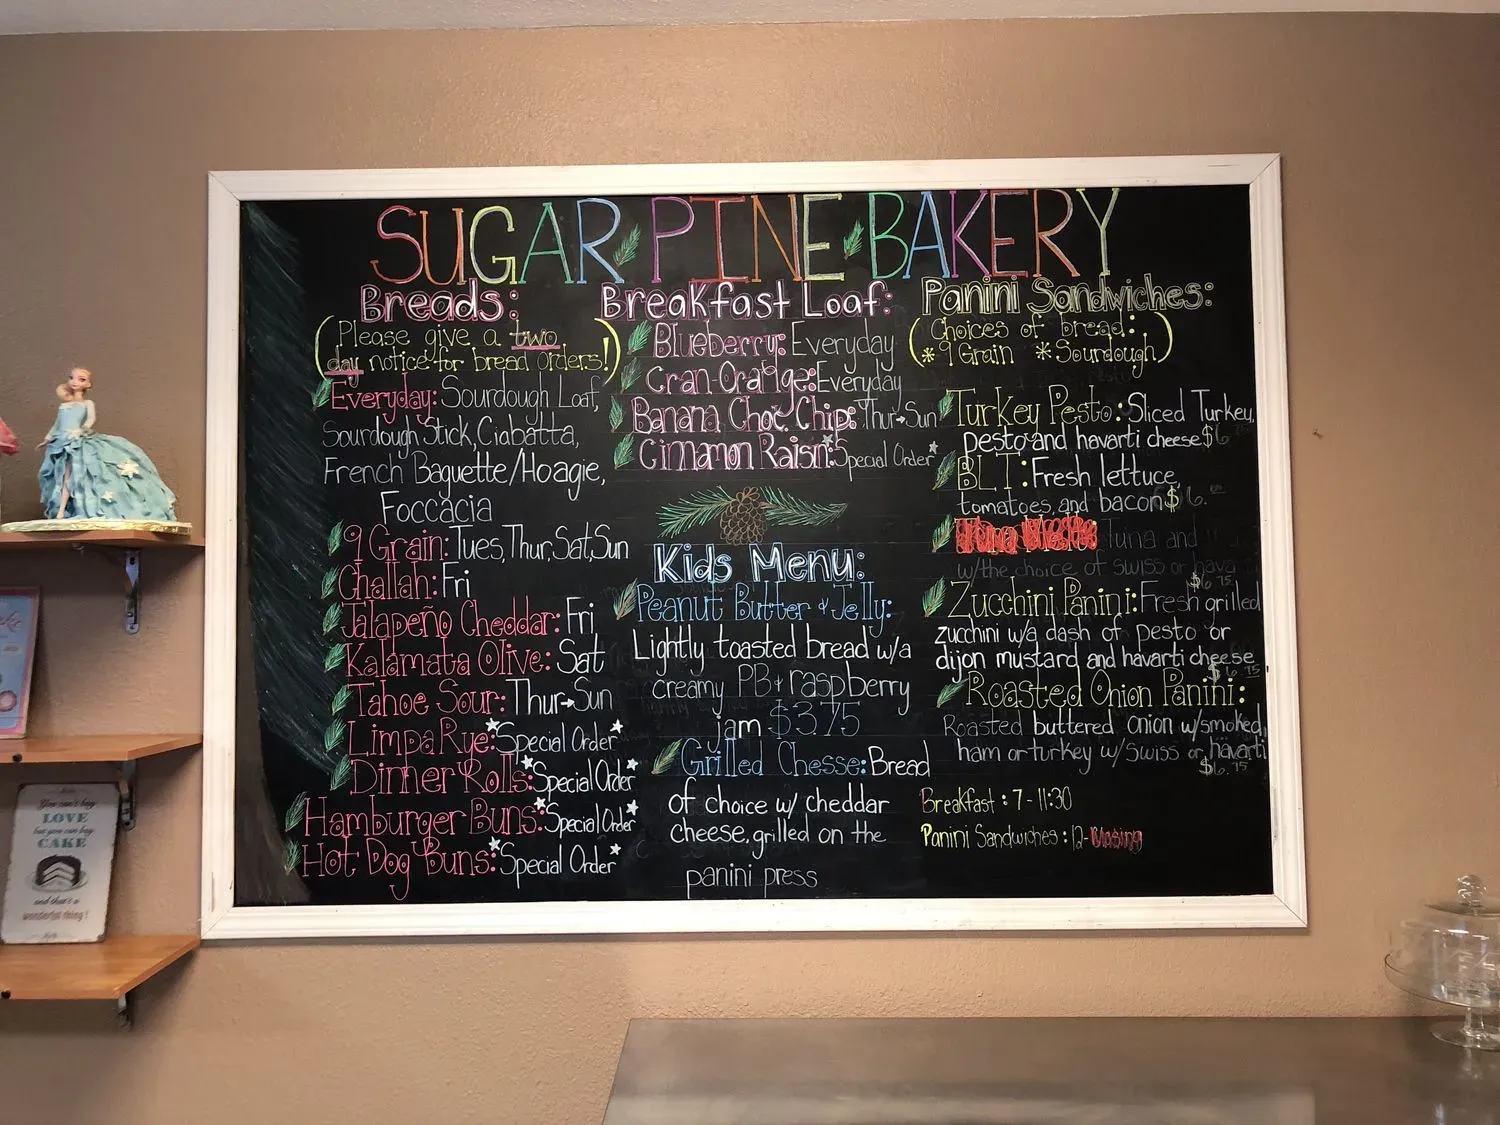 SUGAR PINE BAKERY
Breads:
(Please give a two
day notice for bread orders!)
Everyday: Sourdough Loaf,
Sourdough Stick, Ciabatta,
French Baguette/Hoagie,
Foccacia
9 Grain: Tues, Thur, Sat, Sun
Challah: Fri
Jalapeño Cheddar: Fri
Kalamata Olive: Sat
Tahoe Sour: Thur→Sun
Limpa Rye: *Special Order*
Dinner Rolls: *Special Order*
Hamburger Buns: *Special Order*
Hot Dog Buns: *Special Order*
Breakfast Loaf:
Blueberry: Everyday
Cran-Orange: Everyday
Banana Choc. Chip: Thur→Sun
Cinnamon Raisin: *Special Order*
Kids Menu:
Peanut Butter & Jelly:
Lightly toasted bread w/a
creamy PB & raspberry
jam $3.75
Grilled Chesse: Bread
of choice w/ cheddar
cheese, grilled on the
panini press
Panini Sandwiches:
(Choices of bread:
*9 Grain *Sourdough)
Turkey Pesto: Sliced Turkey,
pesto and havarti cheese $6
BLT: Fresh lettuce,
tomatoes, and bacon $6.
Tuna and
w/the choice of swiss or hava
$6.75
Zucchini Panini: Fresh grilled
zucchini w/a dash of pesto or
dijon mustard and havarti cheese
$6.75
Roasted Onion Panini:
Roasted buttered onion w/smoked
ham or turkey w/swiss or havarti
$6.75
Breakfast: 7-11:30
Panini Sandwiches: 12-
You can't buy
LOVE
but you can buy
CAKE
and that's a
wonderful thing!